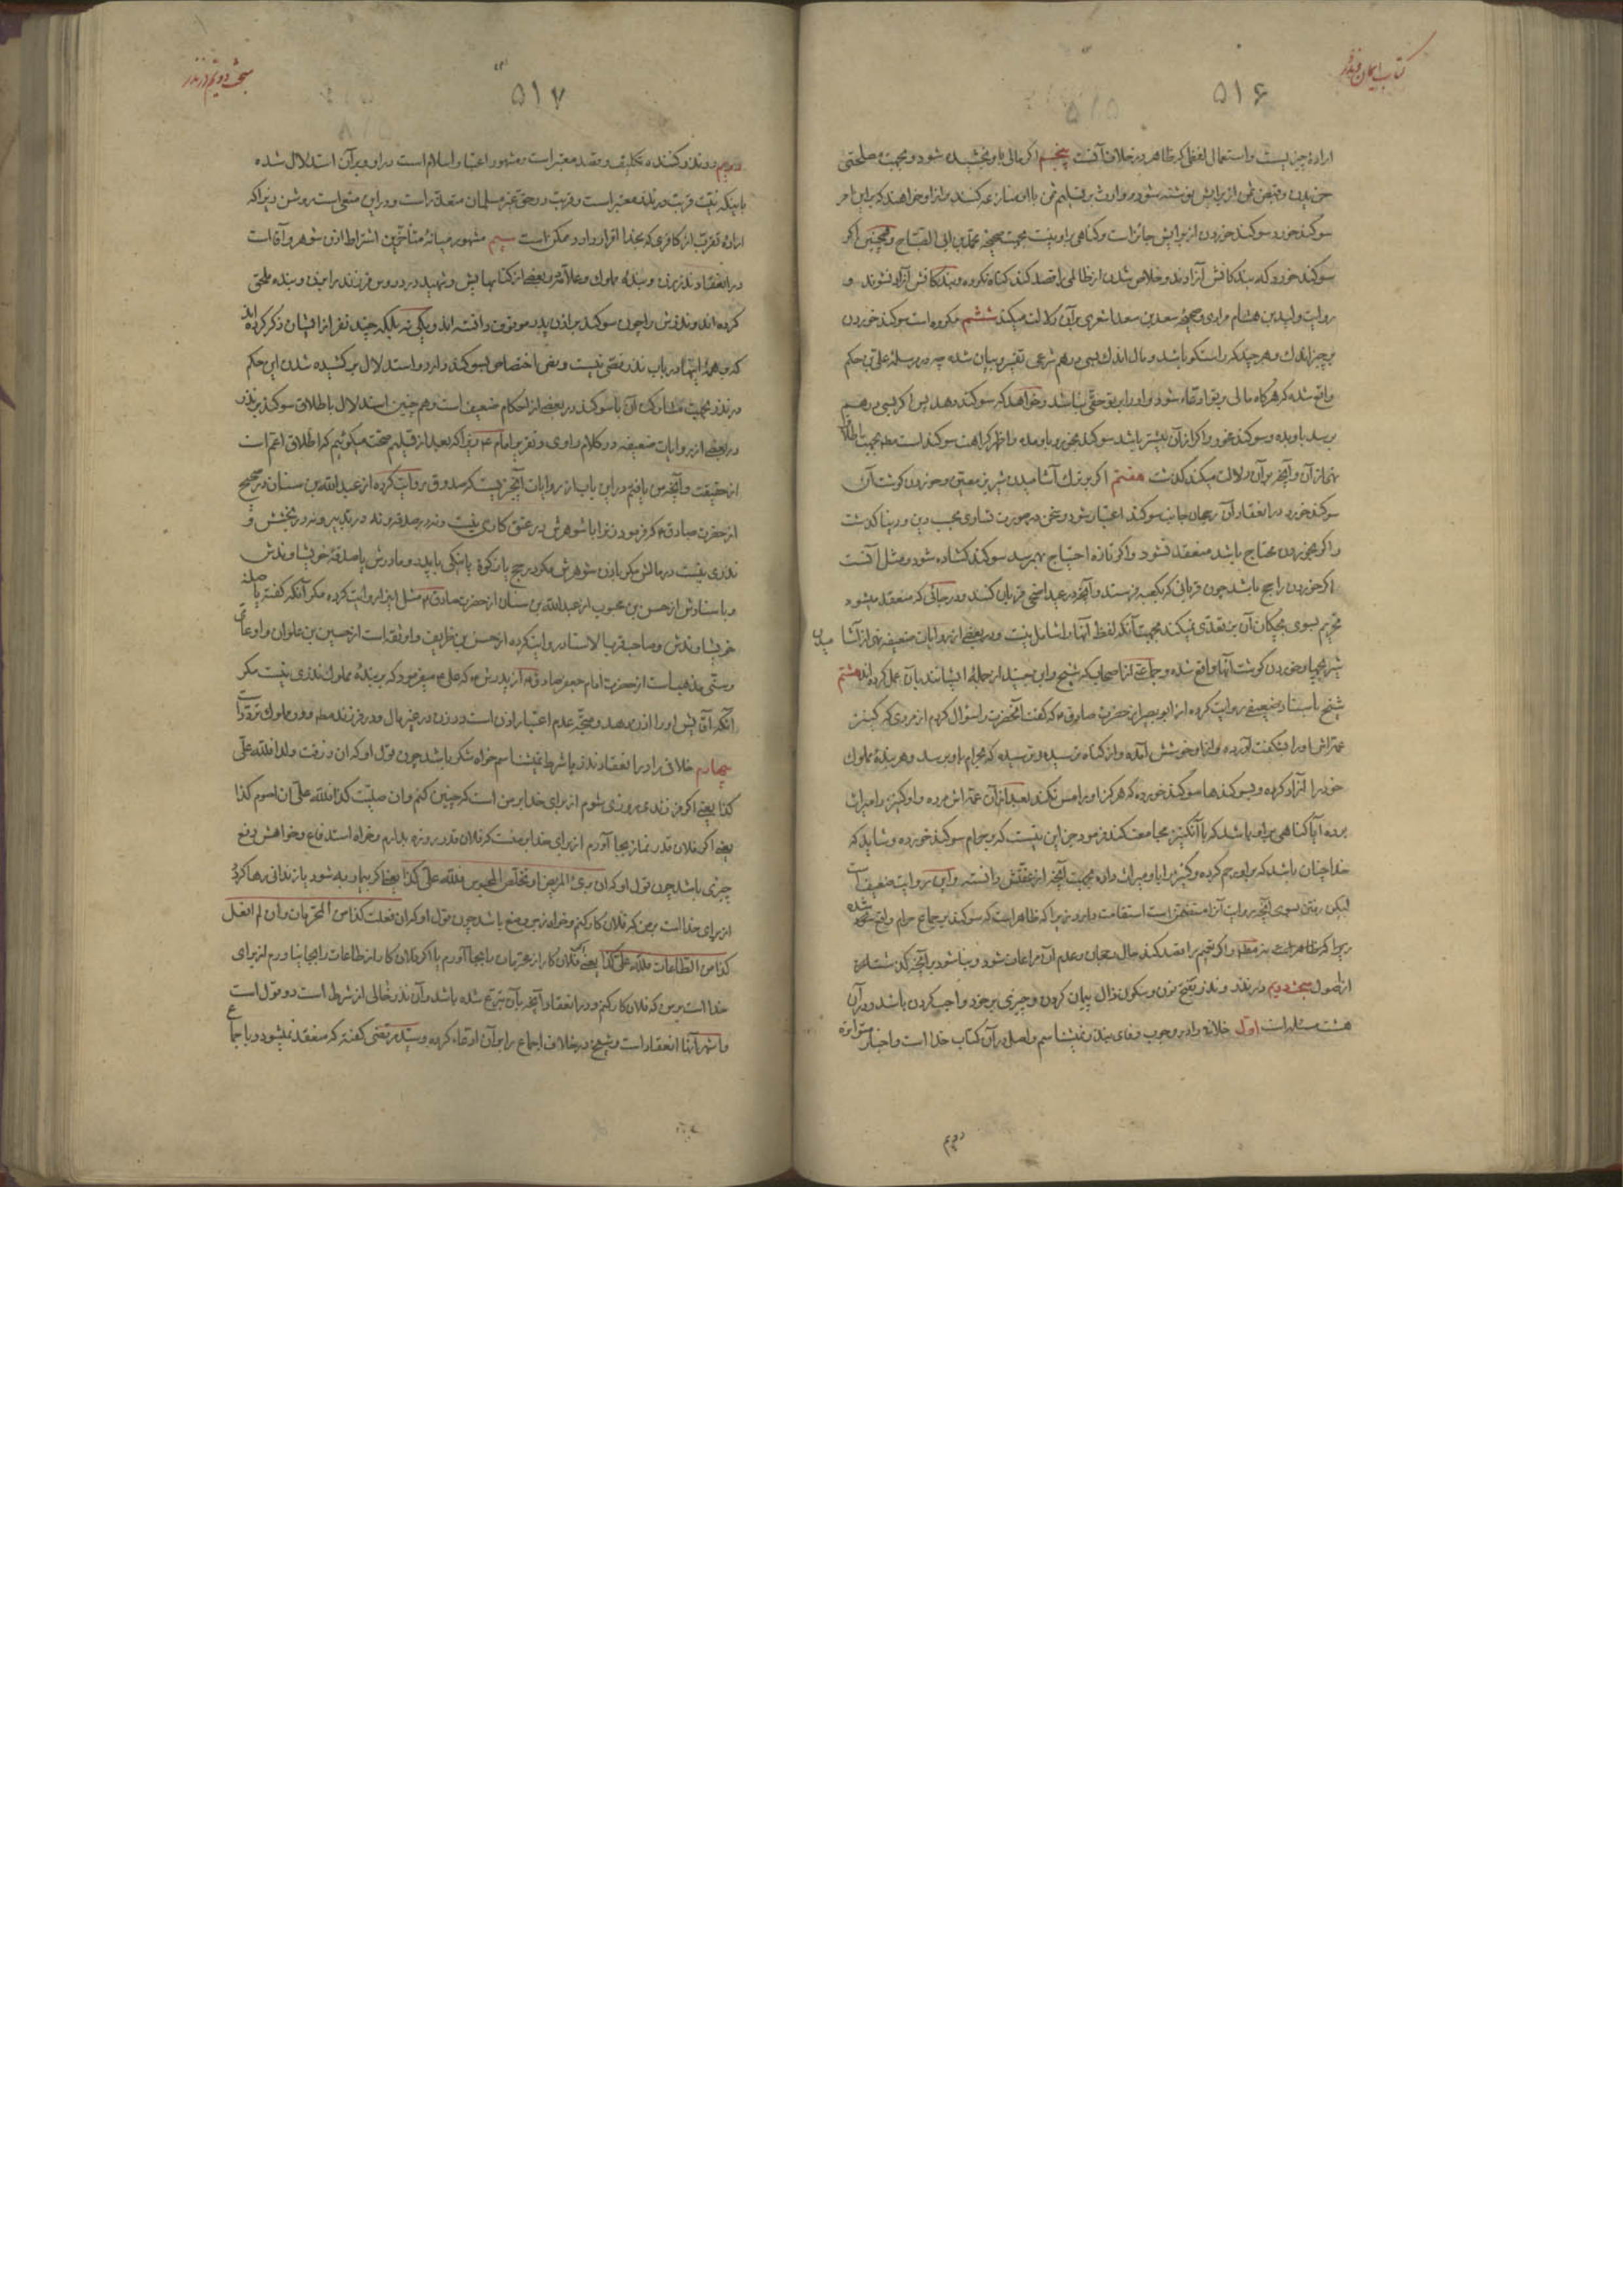 کتاب ایمان و نذر
۵۱۶
ارادهٔ چیزیست و استعمال لفظی که ظاهر در خلاف آنست پنجم اگر مالی باو بخشیده شود و بجهت مصلحتی
خریدن و قبض ثمن از برایش نوشته شود و وارث بر تسلیم ثمن با او منازعه کنند و از او خواهند که براین امر
سوکند خورد سوکند خوردن از برایش جائز است و کناهی بر او نیست بجهت صحیحهٔ محمد بن ابی الصباح و همچنین اکر
سوکند خورد که بندکانش آزادند و خلاص شدن از ظالمی را قصد کند کناه نکرده و بندکانش آزاد نشوند و
روایت ولید بن هشام مرادی و صحیحهٔ سعد بن سعد اشعری بر آن دلالت میکند ششم مکروه است سوکند خوردن
بر چیز اندک و هر چند که راستکو باشد و مال اندک بسی درهم شرعی تفسیر و بیان شده چه در مرسلهٔ علی بن حکم
واقع شده که هرکاه مالی بر تو ادعاء شود و او را بر تو حقی نباشد و خواهد که سوکندت دهد پس اکر بسی درهم
برسد باو بده و سوکند مخور و اکر از آن بیشتر باشد سوکند بخور و باو مده و اظهر کراهت سوکند است مطلقا بجهت اطلاق
نهی از آن و آنچه بر آن دلالت میکند کذشت هفتم اکر بر ترک آشامیدن شیر بز معین و خوردن کوشت آن
سوکند خورد در انعقاد آن رجحان جانب سوکند اعتبار شود و سخن در صورت تساوی بحسب دین و دنیا کذشت
و اکر بخوردن محتاج باشد منعقد نشود و اکر تازه احتیاج بهم رسد سوکند کشاده شود و مثل آنست
اکر خوردن راجح باشد چون قربانی که بکعبه فرستند و آنچه در عید اضحی قربان کنند و در جائی که منعقد میشود
تحریم بسوی بچکان آن بز تعدی نمیکند بجهت آنکه لفظ آنها را شامل نیست و در بعضی از روایات ضعیفه نهی از آشامیدن
شیر بچها و خوردن کوشت آنها واقع شده و جماعتی از اصحاب که شیخ و ابن جنید از جملهٔ ایشانند بآن عمل کرده‌اند هشتم
شیخ باسناد ضعیفی روایت کرده از ابو بصیر از حضرت صادق م که کفت آنحضرت را سؤال کردم از مردی که کنیز
عمه‌اش او را بشکفت آورده و از او خوشش آمده و از کناه ترسیده و ترسیده که بحرام باو برسد و هر بندهٔ مملوک
خود را آزاد کرده و بسوکندها سوکند خورده که هرکز او را مس نکند بعد از آن عمه‌اش مرده و او کنیز را میراث
برده آیا کناهی بر او باشد که با آن کنیز مجامعت کند فرمود جز این نیست که بر حرام سوکند خورده و شاید که
خدا چنان باشد که بر او رحم کرده و کنیز را باو میراث داده بجهت آنچه از عفتش دانسته و این روایت ضعیف است
لیکن رفتن بسوی آنچه روایت آنرا متضمن است استقامت دارد زیرا که ظاهر اینست که سوکند بر جماع حرام واقع شده
زیرا که ظاهر است نه مطلقا و اکر تعمیم را قصد کند حال رجحان و عدم آن مراعات شود و بنا شود بر آنچه کذشته است
از اصول مبحث دویم در نذر و نذر بفتح نون و سکون ذال پیمان کردن و چیزی بر خود واجب کردن باشد و در آن
هشت مسئله است اول خلافی را در وجوب وفای بنذر نمیشناسم و اصل در آن کتاب خدا است و اخبار متواتره
دویم
مبحث دویم در نذر
۵۱۷
دویم در نذر کننده تکلیف و قصد معتبر است و مشهور اعتبار اسلام است در او و بر آن استدلال شده
باینکه نیت قربت در نذر معتبر است و قربت در حق غیر مسلمان متعذر است و در این منعی است روشن زیرا که
ارادهٔ تقرب از کافری که بخدا اقرار دارد ممکن است سیم مشهور میانهٔ متأخرین اشتراط اذن شوهر و آقا است
در انعقاد نذر زن و بندهٔ مملوک و علامه در بعضی از کتابهایش و شهید در دروس فرزند را بزن و بنده ملحق
کرده‌اند و نذرش را چون سوکند بر اذن پدر موقوف دانسته‌اند و یکی نه بلکه چند نفر از ایشان ذکر کرده‌اند
که بر همهٔ اینها در باب نذر نصی نیست و نص اختصاص بسوکند دارد و استدلال بر کشیده شدن این حکم
در نذر بجهت مشارکت آن با سوکند در بعضی از احکام ضعیف است و هم چنین استدلال باطلاق سوکند بر نذر
در بعضی از روایات ضعیفه در کلام راوی و تقریر امام ع زیرا که بعد از تسلیم صحت میکوئیم که اطلاق اعم است
از حقیقت و آنچه من یافتم در این باب از روایات آنچیزیست که صدوق روایت کرده از عبد الله بن سنان در صحیح
از حضرت صادق م که فرمود زن را با شوهرش در عتق کاری نیست و نه در صدقه و نه در تدبیر و نه در بخشش و
نذری نیست در مالش مکر باذن شوهرش مکر در حج یا زکوة یا نیکی با پدر و مادرش یا صدقهٔ خویشاوندش
و باسنادش از حسن بن محبوب از عبد الله بن سنان از حضرت صادق م مثل اینرا روایت کرده مکر آنکه کفته یا صلهٔ
خویشاوندش و صاحب قرب الاسناد روایت کرده از حسن بن ظریف و او ثقه است از حسین بن علوان و او عامی
و سنی مذهب است از حضرت امام جعفر صادق م از پدرش م که علی م میفرمود که بر بندهٔ مملوک نذری نیست مکر
آنکه آقایش او را اذن دهد و متجه عدم اعتبار اذن است در زن در غیر مال و در فرزند مطلقا و در مملوک تردد است
چهارم خلافی را در انعقاد نذر با شرط نمیشناسم خواه شکر باشد چون قول او که ان رزقت ولدا فلله علی
کذا یعنی اکر فرزندی روزی شوم از برای خدا بر من است که چنین کنم و ان صلیت کذا فلله علی ان اصوم کذا
یعنی اکر فلان قدر نماز بجا آورم از برای خدا بر منست که فلان قدر روزه بدارم و خواه استدفاع و خواهش دفع
چیزی باشد چون قول او که ان برئ المریض او تخلص المحبوس فلله علی کذا یعنی اکر بیمار به شود یا زندانی رها کردد
از برای خدا است بر من که فلان کار کنم و خواه زجر و منع باشد چون قول او که ان فعلت کذا من المحرمات و ان لم افعل
کذا من الطاعات فلله علی کذا یعنی فلان کار از محرمات را بجا آورم یا اکر فلان کار از طاعات را بجا نیاورم از برای
خدا است بر من که فلان کار کنم و در انعقاد آنچه بآن تبرع شده باشد و آن نذر خالی از شرط است دو قول است
و اشهر آنها انعقاد است و شیخ در خلاف اجماع را بر آن ادعاء کرده و سید مرتضی کفته که منعقد نمیشود و باجماع